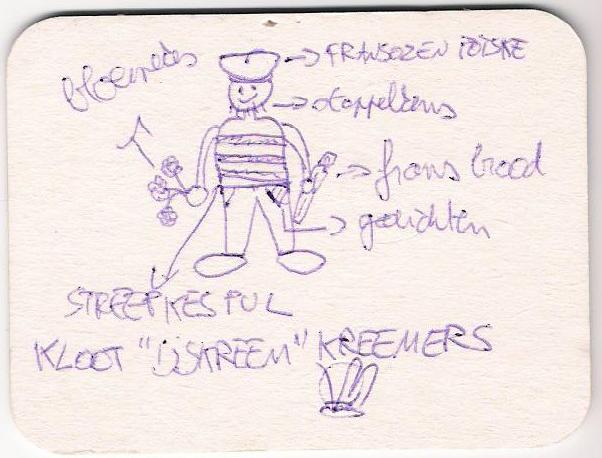 bloemetjes
FRANSOZEN POTSKE
stoppelbaus
frans brood
gedichten
STREEPKESPUL
KLOOT "IJSKREEM" KREEMERS